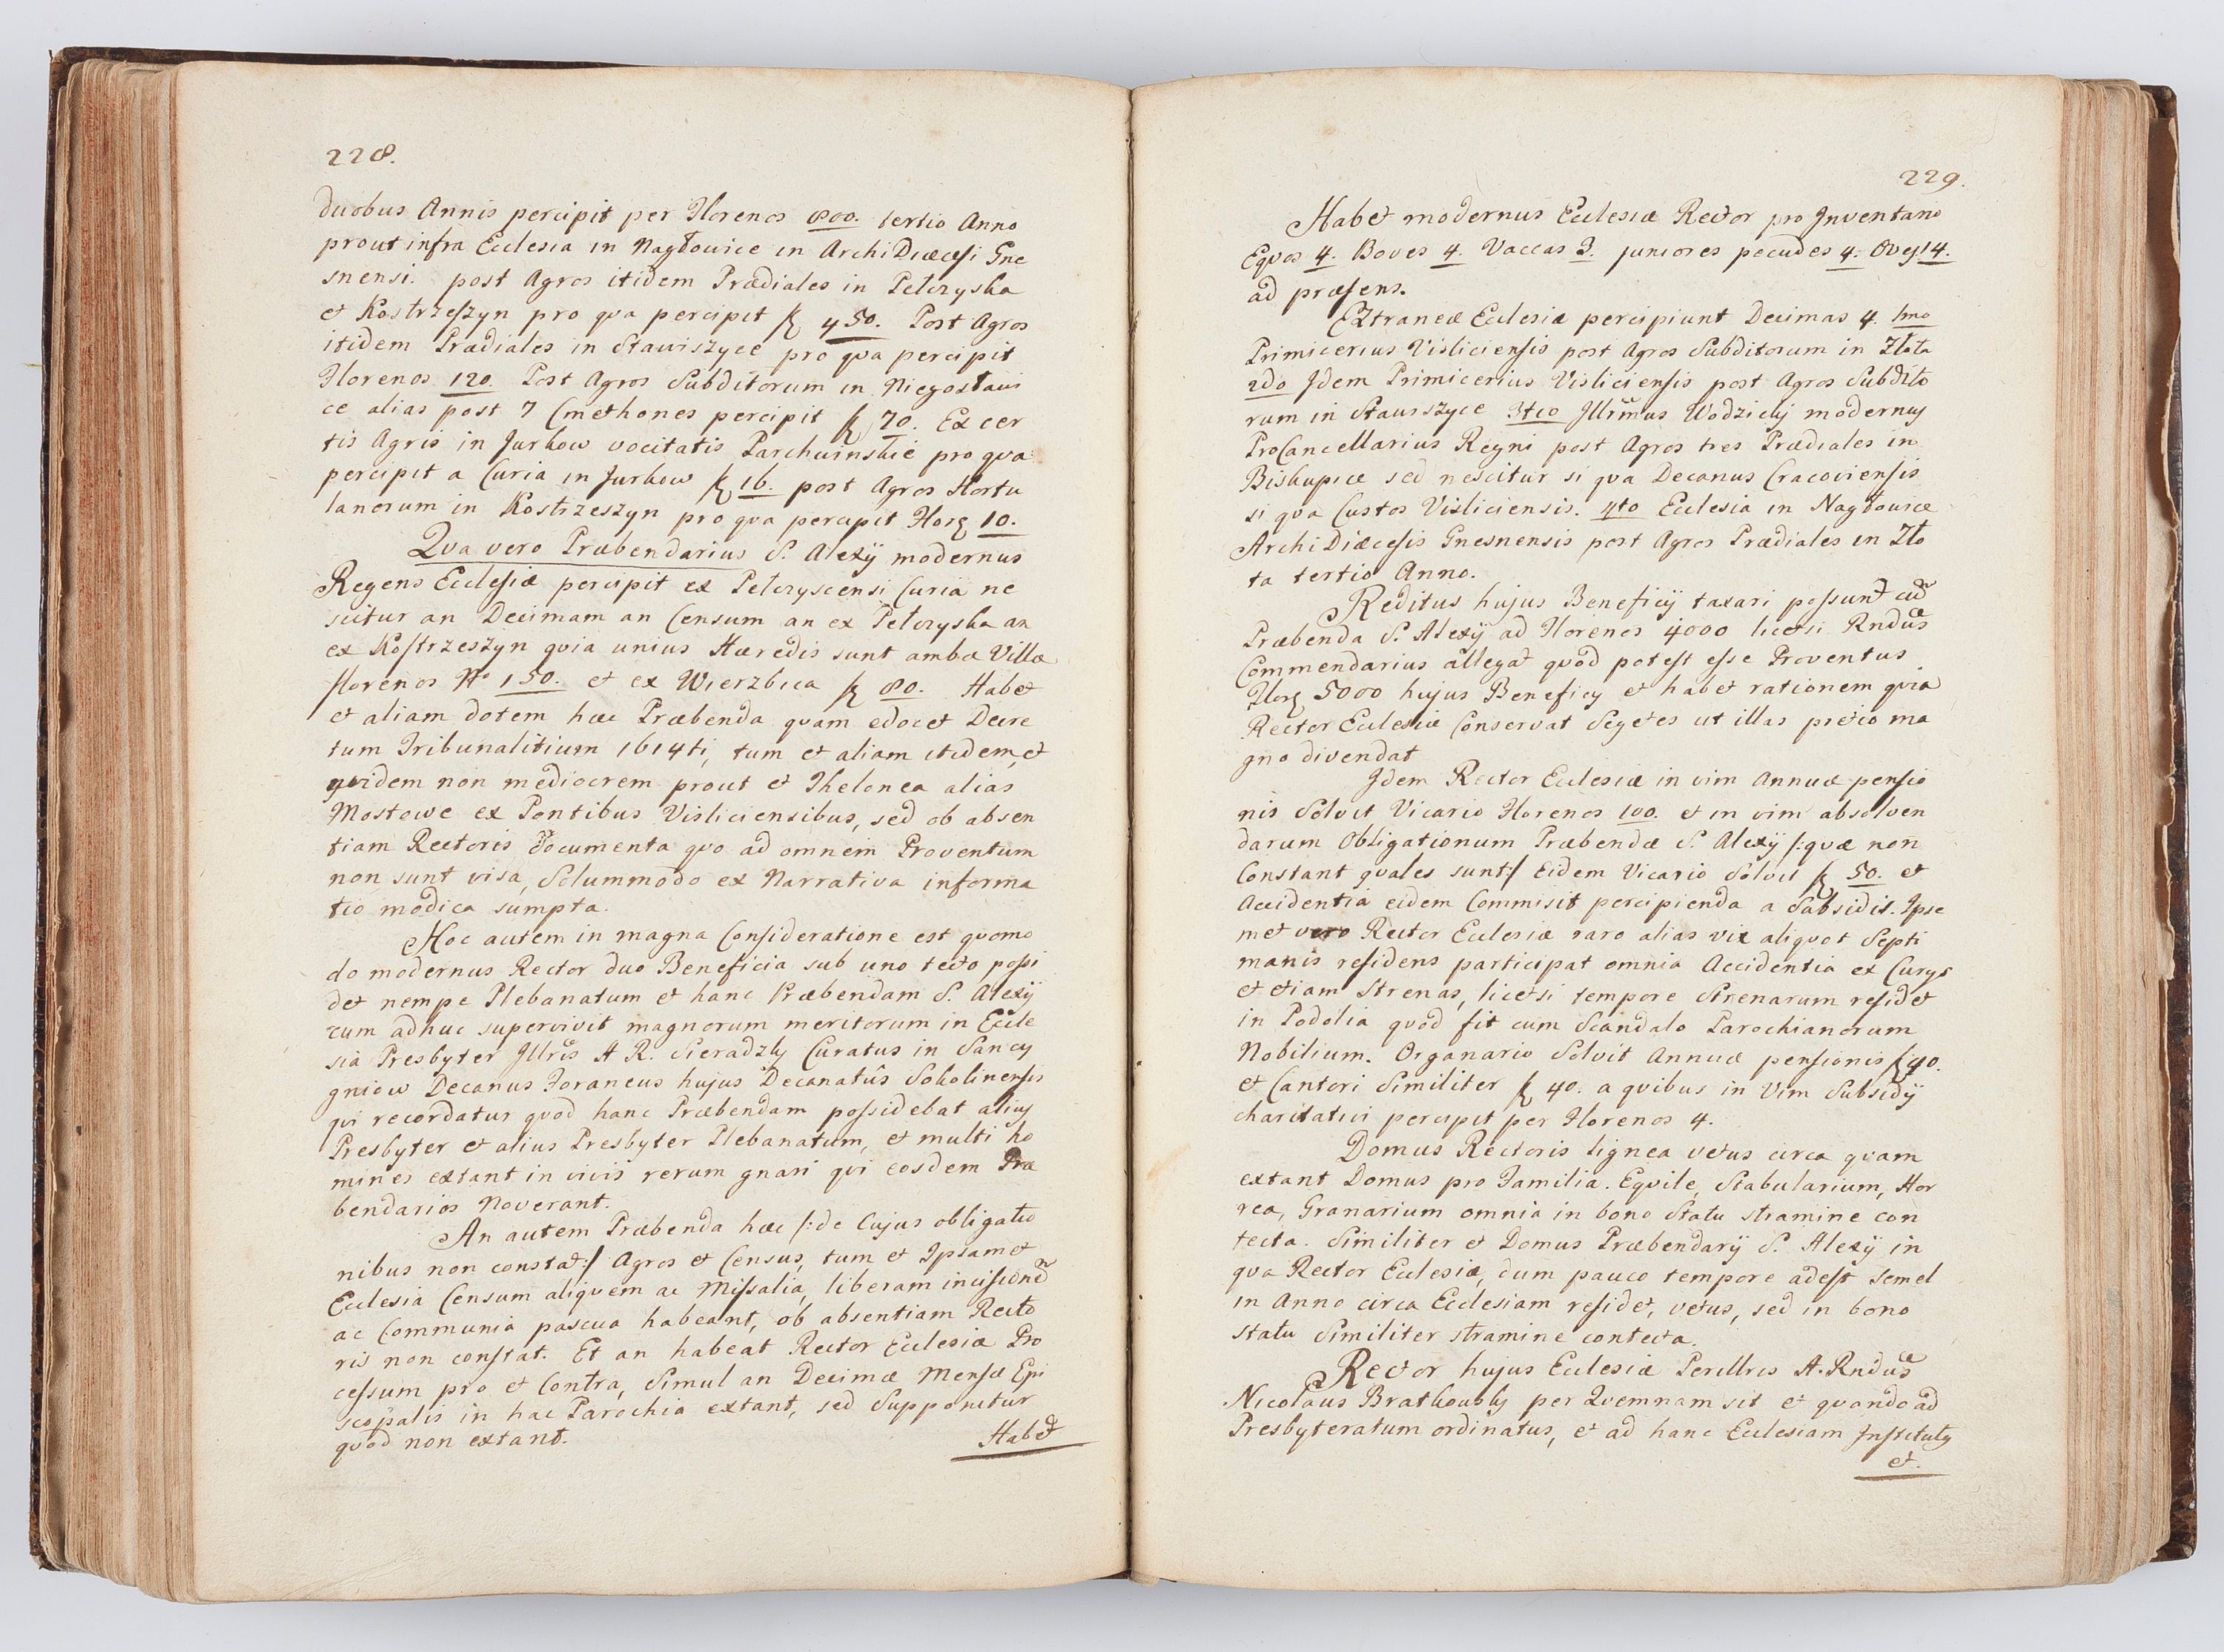 228.
duobus Annis percipit per Florenos 800. tertio Anno
prout infra Ecclesia in Nagłowice in ArchiDiæcesi Gne
snensi. post Agros itidem Prædiales in Pełczyska
et Kostrzeszyn pro qva percipit f 450. Post Agros
itidem Prædiales in Stawiszyce pro qva percipit
Florenos 120. Post Agros Subditorum in Niegosławi
ce alias post 7 Cmethones percipit f 70. Ex cer
tis Agris in Jurkow vocitatis Parchwinskie pro qva
percipit a Curia in Jurkow f 16. post Agros Hortu
lanorum in Kostrzeszyn pro qva percipit Flor 10.
Qva vero Præbendarius S. Alexÿ modernus
Regens Ecclesiæ percipit ex Pełczyscensi Curia ne
scitur an Decimam an Censum an ex Pełczyska an
ex Kostrzeszyn qvia unius Hæredis sunt ambæ Villæ
florenos No 150. et ex Wierzbica f 80. Habet
et aliam dotem hæc Præbenda qvam edocet Decre
tum Tribunalitium 1614ti, tum et aliam itidem, et
qvidem non mediocrem prout et Thelonea alias
Mostowe ex Pontibus Visliciensibus, sed ob absen
tiam Rectoris documenta qvo ad omnem Proventum
non sunt visa, Solummodo ex Narrativa informa
tio modica sumpta.
Hoc autem in magna Consideratione est qvomo
do modernus Rector duo Beneficia sub uno tecto possi
det nempe Plebanatum et hanc Præbendam S. Alexÿ
cum adhuc supervivit magnorum meritorum in Eccle
sia Presbyter Illris A R. Sieradzky Curatus in Sancy
gniow Decanus Foraneus hujus Decanatûs Sokolinensis
qvi recordatur qvod hanc Præbendam possidebat alius
Presbyter et alius Presbyter Plebanatum, et multi ho
mines extant in vivis rerum gnari qvi eosdem Præ
bendarios Noverant.
An autem Præbenda hæc /:de Cujus obligatio
nibus non constat:/ Agros et Census, tum et Ipsamet
Ecclesia Censum aliqvem ac Missalia, liberam incisionem
ac Communia pascua habeant, ob absentiam Recto
ris non constat. Et an habeat Rector Ecclesiæ Pro
cessum pro et Contra, Simul an Decimæ Mensæ Epi
scopalis in hac Parochia extant, sed Supponitur
qvod non extant.
Habet
229.
Habet modernus Ecclesiæ Rector pro Inventario
Eqvos 4. Boves 4. Vaccas 3. juniores pecudes 4. Oves 14.
ad præsens.
Extraneæ Ecclesiæ percipiunt Decimas 4. Imo
Primicerius Visliciensis post Agros Subditorum in Złota
2do Idem Primicerius Visliciensis post Agros Subdito
rum in Stawiszyce 3tio Illrmus Wodzicky modernus
ProCancellarius Regni post Agros tres Prædiales in
Biskupice sed nescitur si qva Decanus Cracoviensis
si qva Custos Visliciensis. 4to Ecclesia in Nagłowice
ArchiDiæcesis Gnesnensis post Agros Prædiales in Zło
ta tertio Anno.
Reditus hujus Beneficÿ taxari possunt cum
Præbenda S. Alexÿ ad Florenos 4000 licetsi Rndus
Commendarius allegat qvod potest esse Proventus
Flor 5000 hujus Beneficÿ et habet rationem qvia
Rector Ecclesiæ Conservat Segetes ut illas pretio ma
gno divendat
Idem Rector Ecclesiæ in vim Annuæ pensio
nis Solvit Vicario Florenos 100. et in vim absolven
darum Obligationum Præbendæ S. Alexÿ /:qvæ non
Constant qvales sunt:/ Eidem Vicario Solvit f 50. et
Accidentia eidem Commisit percipienda a Subsidis. Ipse
met vero Rector Ecclesiæ raro alias vix aliqvot Septi
manis residens participat omnia Accidentia ex Curys
et etiam Strenas, licetsi tempore Strenarum residet
in Podolia qvod fit cum Scandalo Parochianorum
Nobilium. Organario Solvit Annuæ pensionis f 40.
et Cantori Similiter f 40. a qvibus in Vim Subsidÿ
charitativi percipit per Florenos 4.
Domus Rectoris lignea vetus circa qvam
extant Domus pro Familia. Eqvile, Stabularium, Hor
rea, Granarium omnia in bono Statu stramine con
tecta. Similiter et Domus Præbendarÿ S. Alexÿ in
qva Rector Ecclesiæ, dum pauco tempore adest semel
in Anno circa Ecclesiam residet, vetus, sed in bono
statu Similiter stramine contecta.
Rector hujus Ecclesiæ Perillris A. Rndus
Nicolaus Bratkowsky per Qvemnam sit et qvando ad
Presbyteratum ordinatus, et ad hanc Ecclesiam Institutus
et.